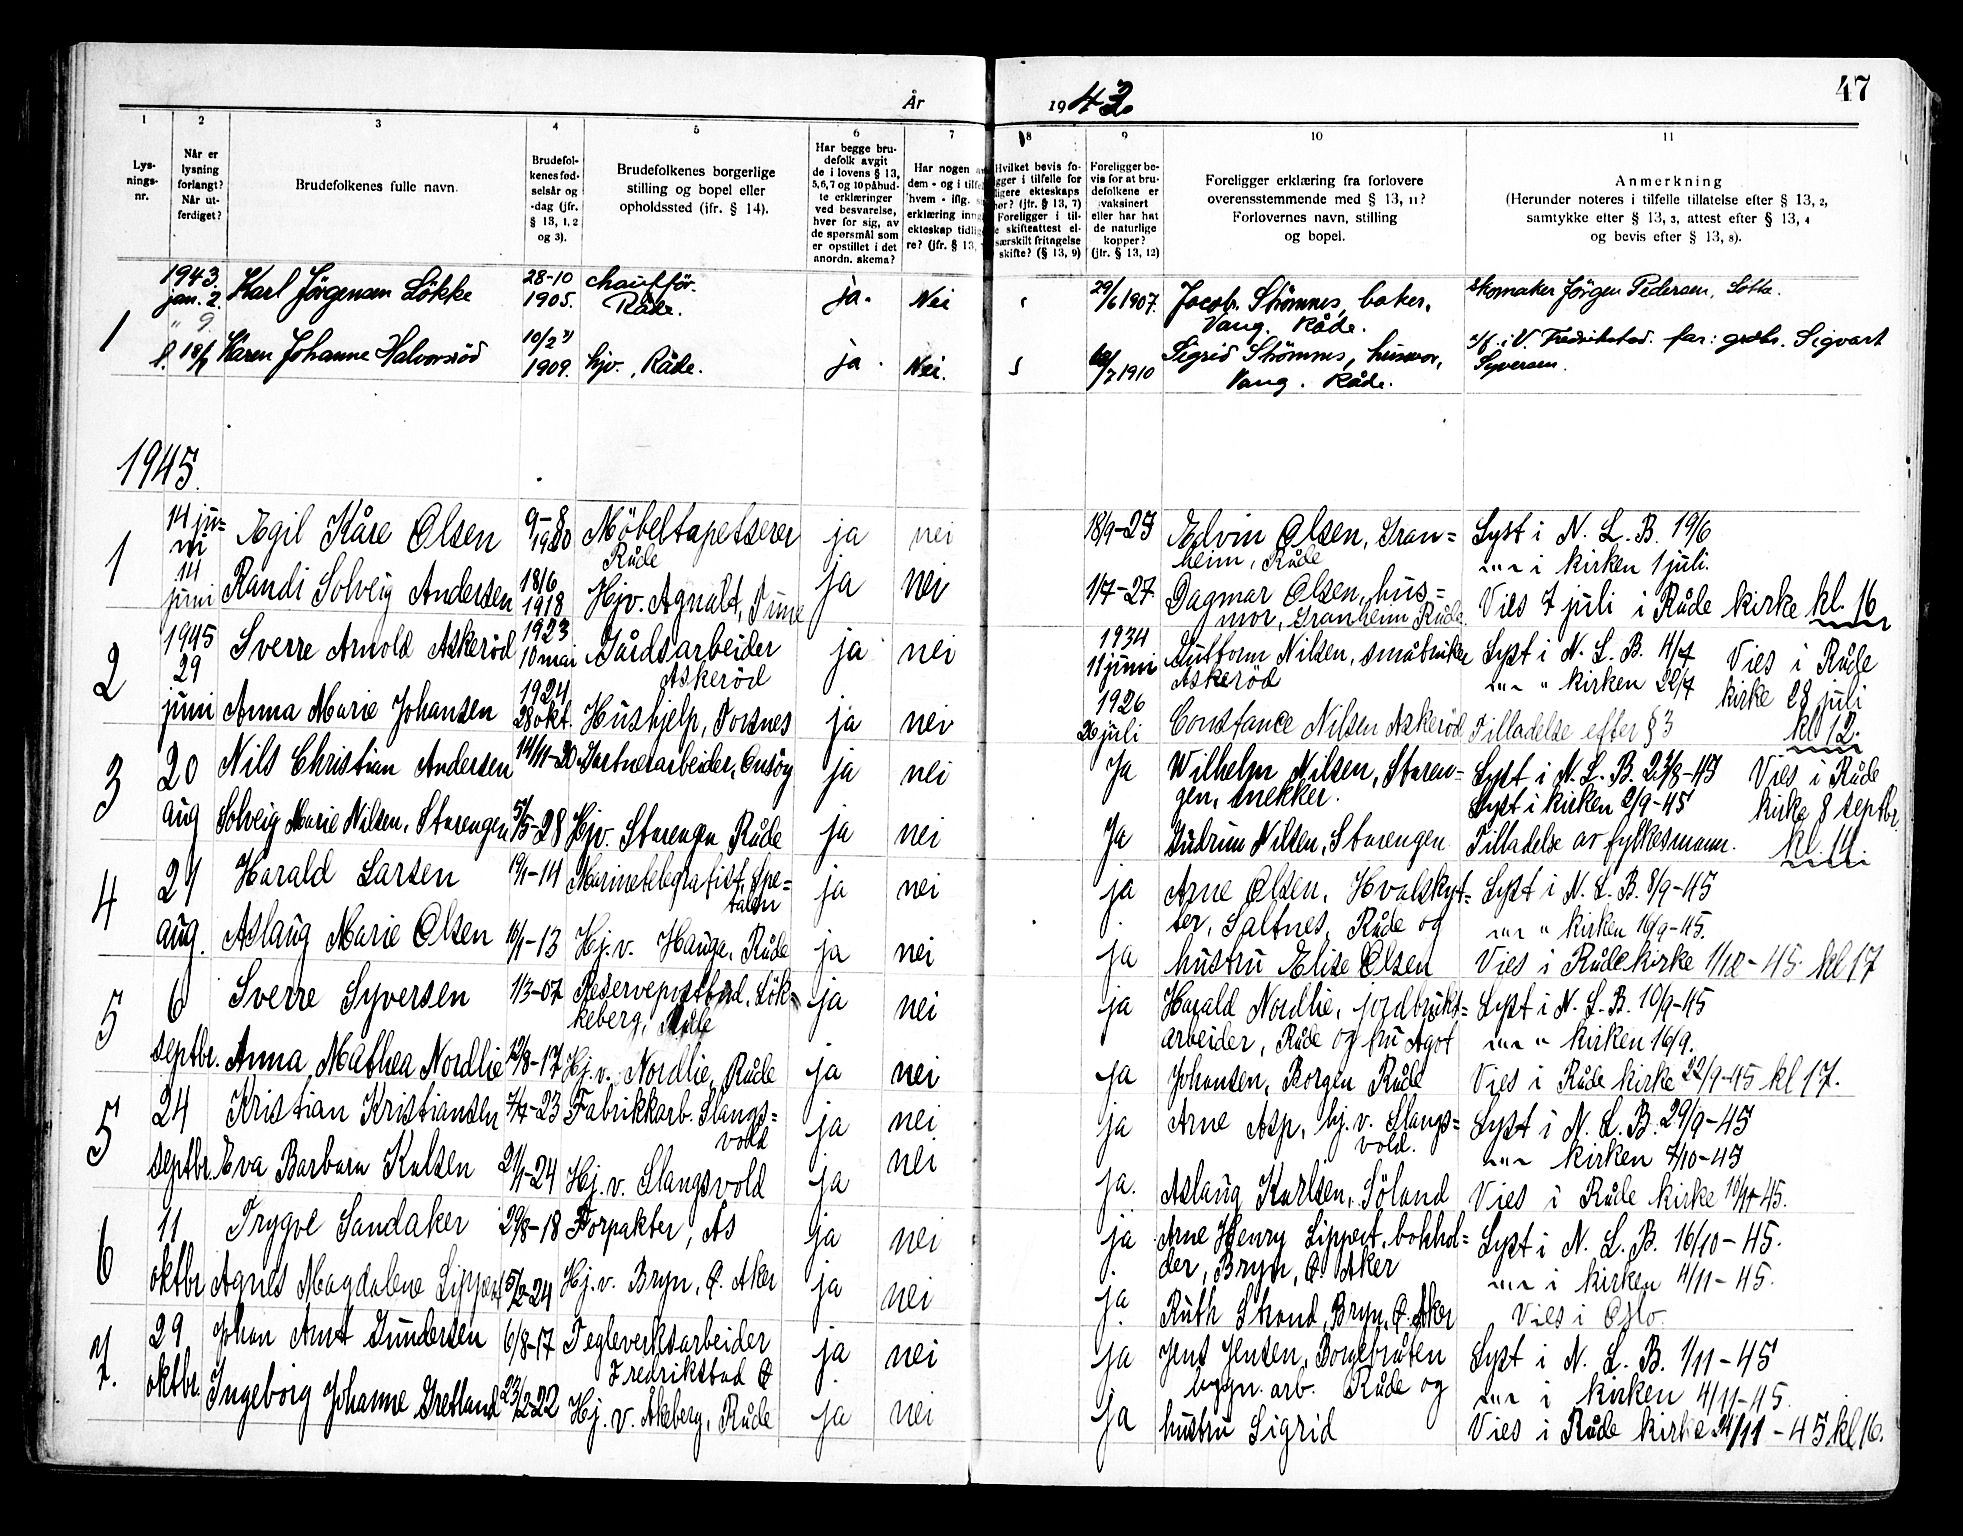 År 1943
47
1 2 3 4 5 6 7 8 9 10 11
Lys-
nings-
nr.
Når er
lysning
forlangt?
Når ut-
ferdiget?
Brudefolkenes fulle navn.
Brudefol-
kenes fød-
selsår og
-dag (jfr.
§ 13, 1, 2
og 3).
Brudefolkenes borgerlige
stilling og bopel eller
opholdssted (jfr. § 14).
Har begge bru-
defolk avgit
de i lovens § 13,
5, 6, 7 og 10 påbud-
te erklæringer
ved besvarelse,
hver for sig, av
de spørsmål som
er opstillet i det
anordn. skema?
Har nogen
dem - og i
hvem - iflg.
erklæring
ekteskap
re? (jfr. § 13,
Hvilket bevis fo-
gger i tilfelle for
ligere ekteskaps
hør? (jfr. § 13, 7)
Foreligger i til-
e skifteattest el-
særskilt fritagelse
skifte? (§ 13, 9)
Foreligger be-
vis for at bru-
defolkene er
vaksinert
eller har hat
de naturlige
kopper?
(jfr. § 13, 12)
Foreligger erklæring fra forlovere
overensstemmende med § 13, 11?
Forlovernes navn, stilling
og bopel.
Anmerkning
(Herunder noteres i tilfelle tillatelse efter § 13, 2,
samtykke efter § 13, 3, attest efter § 13, 4
og bevis efter § 13, 8).
1
1943
jan. 2.
" 9.
Karl Jörgensen Lökke
28-10
1905.
chauffför.
Råde.
ja.
Nei
29/6 1907.
Jacob Strömnes, baker,
Vang. Råde.
skomaker Jörgen Pedersen,
18/1
Karen Johanne Halvorsröd
10/2
1909.
hjv., Råde.
ja.
Nei.
/7 1910
Sigrid Strömnes, husmor,
Vang. Råde.
i V. Fredrikstad. far: Sigvart
Syversen.
1945.
1
14 ju=
ni
Egil Kåre Olsen
9-8
1920
Möbeltapetserer
Råde
ja
nei
18/9-23
Edvin Olsen, Gran=
heim, Råde
Lyst i N. L. B. 19/6
-"- i kirken 1 juli.
14
juni
Randi Solveig Andersen
18/6
1918
Hjv. Agnalt, Tune
ja
nei
1/7-27
Dagmar Olsen, hus=
mor, Granheim Råde
Vies 7 juli i Råde kirke kl. 16
2
1945
29
juni
Sverre Arnold Askeröd
1923
10 mai
Gårdsarbeider
Askeröd
ja
nei
1934
11 juni
Guttorm Nilsen, småbruker
Askeröd
Lyst i N. L. B. 4/7
-"- " kirken 22/7
Vies i Råde
kirke 28 juli
kl 12.
Anna Marie Johansen
1924
28 okt.
Hushjelp, Torsnes
ja
nei
1926
26 juli
Constance Nilsen Askeröd
Tilladelse efter § 3
3
20
aug
Nils Christian Andersen
14/11-20
Gartnerarbeider, Onsöy
ja
nei
Ja
Wilhelm Nilsen, Storen=
gen, snekker.
Lyst i N. L. B. 23/8-45
Lyst i kirken 2/9-45
Vies i Råde
kirke 8 septbr.
kl. 14.
Solveig Marie Nilsen, Storengen
5/5-28
Hjv. Storengen Råde
ja
nei
Ja
Gudrun Nilsen, Storengen
Tilladelse av fylkesmann.
4
27
aug.
Harald Larsen
19/1-14
Marinetelegrafist, Spe=
talen
ja
nei
ja
Arne Olsen, Hvalskyt=
ter, Saltnes, Råde og
Lyst i N. L. B. 8/9-45
-"- " kirken 16/9-45.
Aslaug Marie Olsen
16/1-13
Hj.v. Hauge, Råde
ja
nei
ja
hustru Elise Olsen
Vies i Råde kirke 1/12-45. kl 17
5
6
septbr.
Sverre Syversen
1/3-07
Reservepostbud, Lök=
keberg, Råde
ja
nei
ja
Harald Nordlie, jordbrukt=
arbeider, Råde og fru Agot
Lyst i N. L. B. 10/9-45
-"- " kirken 16/9.
Anna Mathea Nordlie
12/8-17
Hj.v. Nordlie, Råde
ja
nei
ja
Johansen, Borgen Råde
Vies i Råde kirke 22/9-45 kl 17.
5
24
septbr.
Kristian Kristiansen
7/7-23
Fabrikkarb. Slangs=
vold
ja
nei
ja
Arne Asp, hj.v. Slangs=
vold.
Lyst i N. L. B. 29/9-45
-"- kirken 7/10-45
Eva Barbara Kalsen
21/1-24
Hj.v. Slangsvold
ja
nei
ja.
Aslaug Karlsen, Söland
Vies i Råde kirke 10/11-45.
6
11
oktbr
Trygve Sandaker
29/8-18
Forpakter, Ås
ja
nei
ja
Arne Henry Lippert, bokhol=
der, Bryn, Ö. Aker
Lyst i N. L. B. 16/10-45.
-"- i kirken 4/11-45.
Agnes Magdalene Lippert
15/2-24
Hj.v. Bryn, Ö. Aker
ja
nei
ja.
Ruth Strand, Bryn, Ö. Aker
Vies i Oslo.
7.
29
oktbr.
Johan Arnt Gundersen
6/8-17
Tegleverksarbeider
Fredrikstad Ö
ja.
nei
ja
Jens Jensen, Borgebråten
bygn. arb. Råde og
Lyst i N. L. B. 1/11-45
-"- i kirken 4/11-45.
Ingeborg Johanne Gretland
23/2-22
Hj. v. Åkeberg, Råde
ja
nei
ja
hustru Sigrid
Vies i Råde kirke 24/11-45 kl 16.